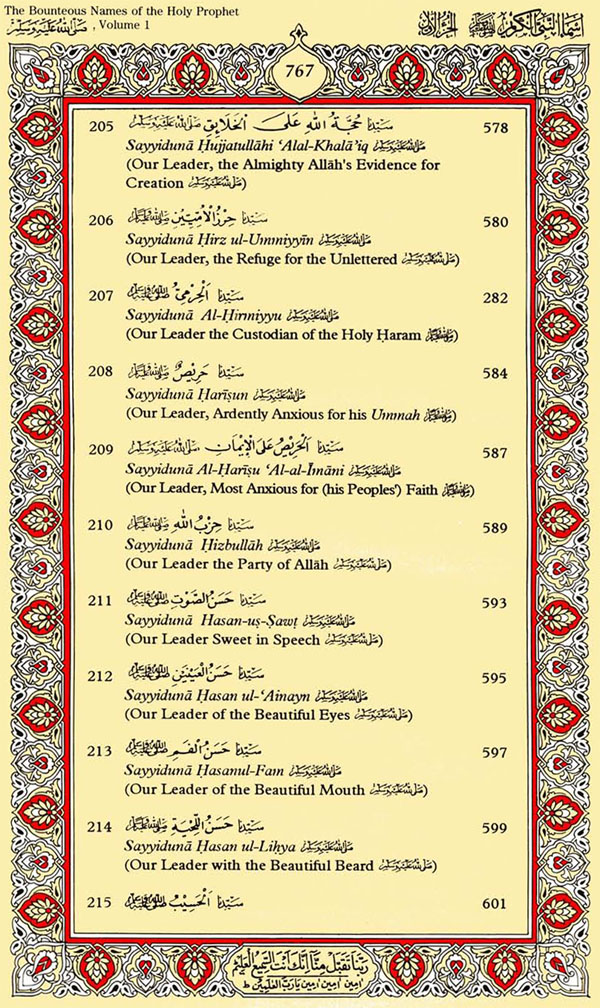 The Bounteous Names of the Holy Prophet
صَلَّى اللهُ عَلَيْهِ وَسَلَّمَ , Volume 1
اسماء النبى الكريم ﷺ الجزء الاول
767
205 سَيِّدُنَا حُجَّةُ اللهِ عَلَى الْخَلَايِقِ ﷺ 578
Sayyidunā Ḥujjatullāhi ‘Alal-Khalā’iq ﷺ
(Our Leader, the Almighty Allāh's Evidence for
Creation ﷺ)
206 سَيِّدُنَا حِرْزُ الْأُمِّيِّيْنَ ﷺ 580
Sayyidunā Ḥirz ul-Ummiyyīn ﷺ
(Our Leader, the Refuge for the Unlettered ﷺ)
207 سَيِّدُنَا الْحِرْمِيُّ ﷺ 282
Sayyidunā Al-Ḥirmiyyu ﷺ
(Our Leader the Custodian of the Holy Ḥaram ﷺ)
208 سَيِّدُنَا حَرِيْصٌ ﷺ 584
Sayyidunā Ḥarīṣun ﷺ
(Our Leader, Ardently Anxious for his Ummah ﷺ)
209 سَيِّدُنَا الْحَرِيْصُ عَلَى الْإِيْمَانِ ﷺ 587
Sayyidunā Al-Ḥarīṣu ‘Al-al-Īmāni ﷺ
(Our Leader, Most Anxious for (his Peoples') Faith ﷺ)
210 سَيِّدُنَا حِزْبُ اللهِ ﷺ 589
Sayyidunā Ḥizbullāh ﷺ
(Our Leader the Party of Allāh ﷺ)
211 سَيِّدُنَا حَسَنُ الصَّوْتِ ﷺ 593
Sayyidunā Hasan-uṣ-Ṣawṭ ﷺ
(Our Leader Sweet in Speech ﷺ)
212 سَيِّدُنَا حَسَنُ الْعَيْنَيْنِ ﷺ 595
Sayyidunā Ḥasan ul-‘Ainayn ﷺ
(Our Leader of the Beautiful Eyes ﷺ)
213 سَيِّدُنَا حَسَنُ الْفَمِ ﷺ 597
Sayyidunā Ḥasanul-Fam ﷺ
(Our Leader of the Beautiful Mouth ﷺ)
214 سَيِّدُنَا حَسَنُ اللِّحْيَةِ ﷺ 599
Sayyidunā Ḥasan ul-Liḥya ﷺ
(Our Leader with the Beautiful Beard ﷺ)
215 سَيِّدُنَا الْحَسِيْبُ ﷺ 601
رَبَّنَا تَقَبَّلْ مِنَّا إِنَّكَ أَنْتَ السَّمِيْعُ الْعَلِيْمُ
امين امين امين يا رب العلمين ط